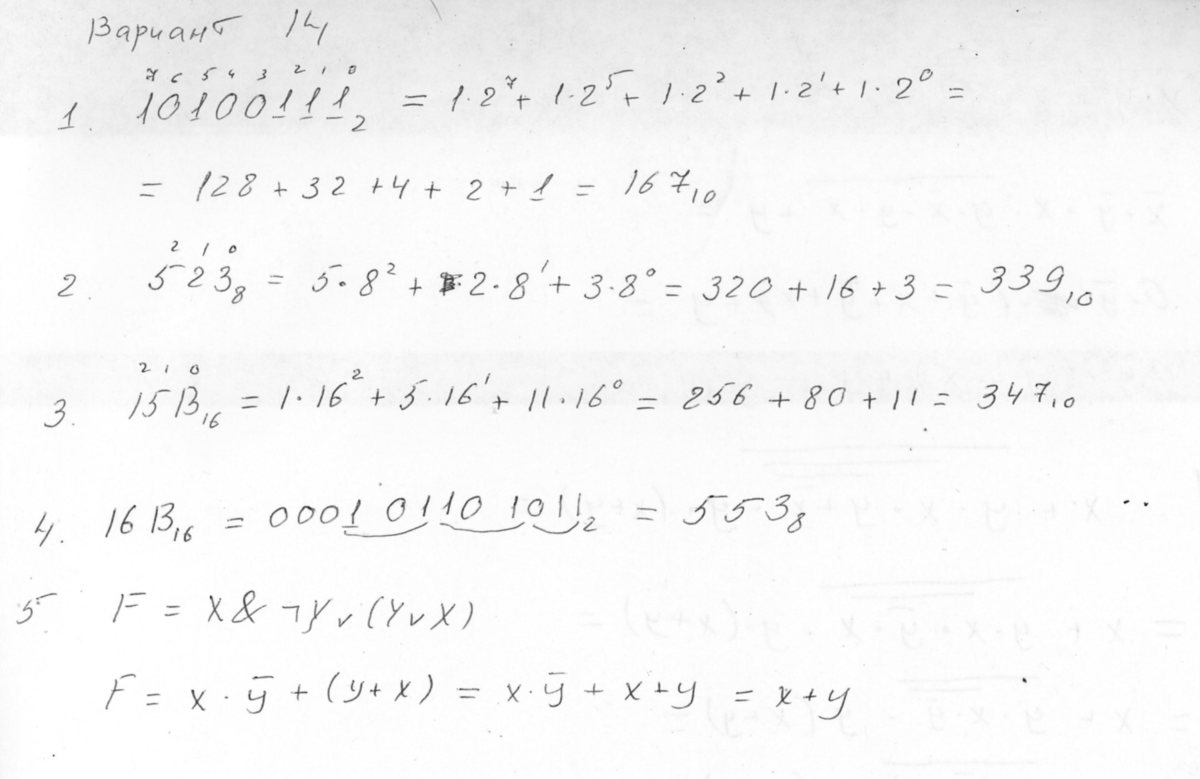 Вариант 14
7 6 5 4 3 2 1 0
1 10100111₂ = 1·2⁷ + 1·2⁵ + 1·2² + 1·2¹ + 1·2⁰ =
= 128 + 32 + 4 + 2 + 1 = 167₁₀
2 1 0
2. 523₈ = 5·8² + 2·8¹ + 3·8⁰ = 320 + 16 + 3 = 339₁₀
2 1 0
3. 15B₁₆ = 1·16² + 5·16¹ + 11·16⁰ = 256 + 80 + 11 = 347₁₀
4. 16B₁₆ = 0001 0110 1011₂ = 553₈
5 F = X & ¬Y ∨ (Y ∨ X)
F = x · ȳ + (y + x) = x · ȳ + x + y = x + y